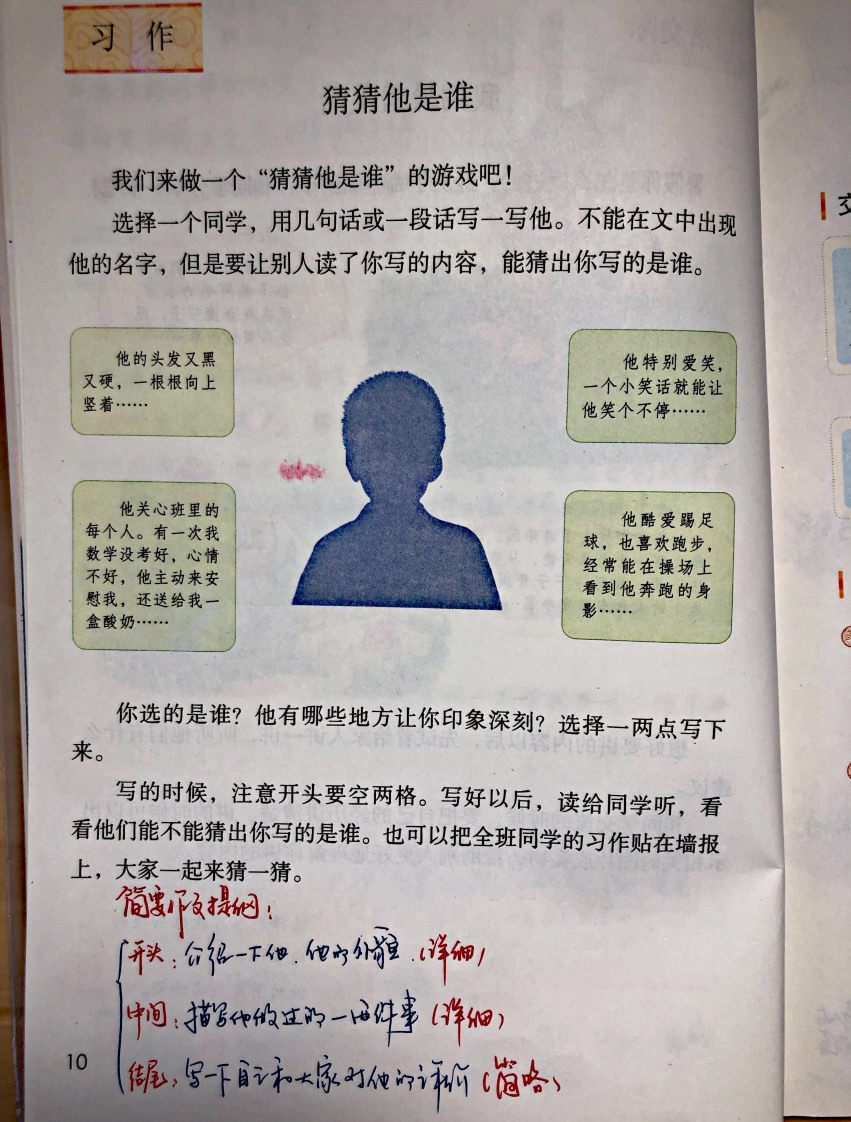 习 作
猜猜他是谁
我们来做一个“猜猜他是谁”的游戏吧！
选择一个同学，用几句话或一段话写一写他。不能在文中出现
他的名字，但是要让别人读了你写的内容，能猜出你写的是谁。
他的头发又黑
又硬，一根根向上
竖着……
他特别爱笑，
一个小笑话就能让
他笑个不停……
他关心班里的
每个人。有一次我
数学没考好，心情
不好，他主动来安
慰我，还送给我一
盒酸奶……
他酷爱踢足
球，也喜欢跑步，
经常能在操场上
看到他奔跑的身
影……
你选的是谁？他有哪些地方让你印象深刻？选择一两点写下
来。
写的时候，注意开头要空两格。写好以后，读给同学听，看
看他们能不能猜出你写的是谁。也可以把全班同学的习作贴在墙报
上，大家一起来猜一猜。
简要作文提纲：
开头：介绍一下他，他的外貌.（详细）
中间：描写他做过的一两件事（详细）
结尾：写一下自己和大家对他的评价（简略）
10